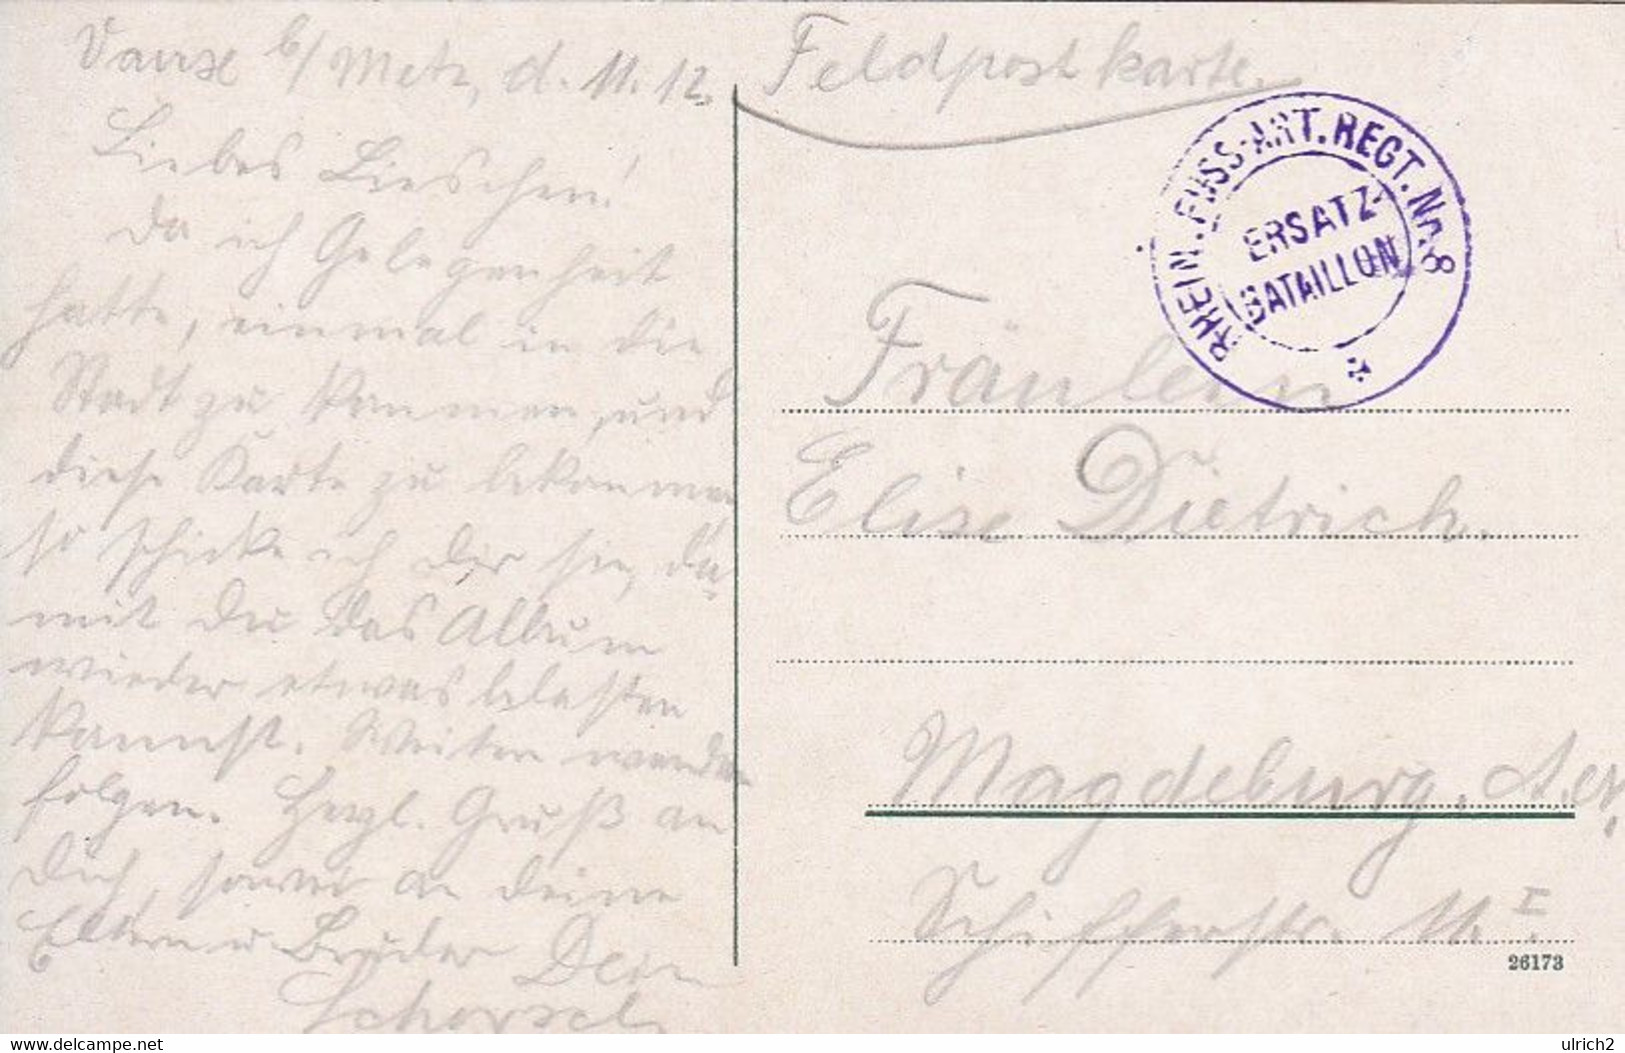 Feldpostkarte.
b/Metz, d. 11. 12.
Liebes Lieschen!
Da ich Gelegenheit
hatte, einmal in die
Stadt zu kommen, und
diese Karte zu bekommen
so schicke ich Dir sie, da
mit Du das Album
wieder etwas belasten
kannst. Weitere werden
folgen. Herzl. Gruß an
Dich, sowie an Deine
Eltern u. Bruder Dein
Schorsch
RHEIN. FUSS-ART. REGT. Nr. 8
ERSATZ-
BATAILLON
Fräulein
Elise Dietrich.
Magdeburg.
Schifferstr. 11. I.
26173
www.delcampe.net
ulrich2